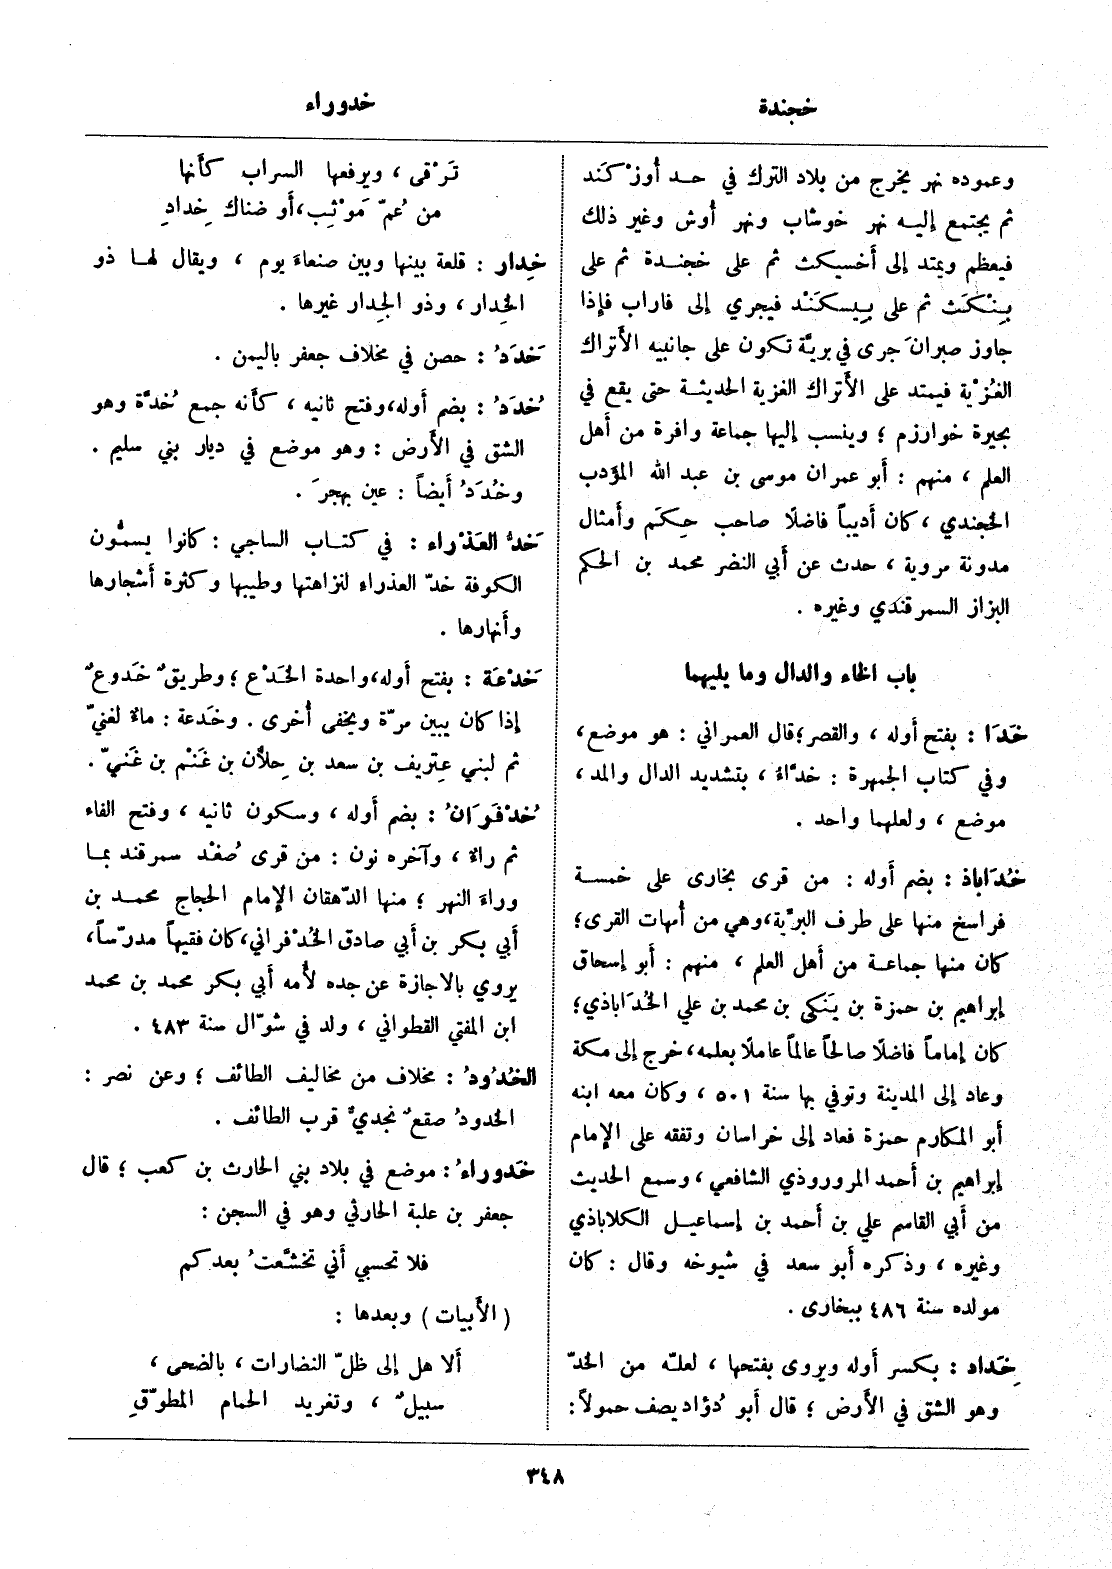 خجندة
خدوراء
وعموده نهر يخرج من بلاد الترك في حد أوزْكَند
ثم يجتمع إليه نهر خوشاب ونهر أُوش وغير ذلك
فيعظم ويمتد إلى أَخسيكث ثم على خجندة ثم على
بِنْكَث ثم على بِيسكَنْد فيجري إلى فاراب فإذا
جاوز صبرانَ جرى في بريَّة تكون على جانبيه الأَتراك
الغُزْية فيمتد على الأَتراك الغزية الحديثة حتى يقع في
بحيرة خوارزم ؛ وينسب إليها جماعة وافرة من أَهل
العلم ، منهم : أَبو عمران موسى بن عبد الله المؤدب
الخجندي ، كان أَديباً فاضلًا صاحب حِكَم وأَمثال
مدونة مروية ، حدث عن أَبي النضر محمد بن الحكم
البزاز السمرقندي وغيره .
باب الخاء والدال وما يليهما
خَدَا : بفتح أَوله ، والقصر ؛ قال العمراني : هو موضع ،
وفي كتاب الجمهرة : خدَّاءُ ، بتشديد الدال والمد ،
موضع ، ولعلهما واحد .
خُدَاباذ : بضم أَوله : من قرى بخارى على خمسة
فراسخ منها على طرف البرّية ، وهي من أُمهات القرى ؛
كان منها جماعة من أَهل العلم ، منهم : أَبو إسحاق
إبراهيم بن حمزة بن يَنَكي بن محمد بن علي الخُدَاباذي ؛
كان إماماً فاضلًا صالحاً عالماً عاملًا بعلمه ، خرج إلى مكة
وعاد إلى المدينة وتوفي بها سنة ٥٠١ ، وكان معه ابنه
أَبو المكارم حمزة فعاد إلى خراسان وتفقه على الإمام
إبراهيم بن أَحمد المروروذي الشافعي ، وسمع الحديث
من أَبي القاسم علي بن أَحمد بن إسماعيل الكلاباذي
وغيره ، وذكره أَبو سعد في شيوخه وقال : كان
مولده سنة ٤٨٦ ببخارى .
خِدَاد : بكسر أَوله ويروى بفتحها ، لعلّه من الخدّ
وهو الشق في الأَرض ؛ قال أَبو دُوَاد يصف حمولاً :
تَرْقى ، ويرفعها السراب كأَنها
من عُمّ مَوْثِب ، أَو ضناك خِدادِ
خِدار : قلعة بينها وبين صنعاءَ يوم ، ويقال لها ذو
الخِدار ، وذو الجِدار غيرها .
خَدَدُ : حصن في مخلاف جعفر باليمن .
خُدَدُ : بضم أَوله ، وفتح ثانيه ، كأَنه جمع خُدَّة وهو
الشق في الأَرض : وهو موضع في ديار بني سليم .
وخُدَدُ أَيضاً : عين بهجرَ .
خَدُّ العَذْراء : في كتاب الساجي : كانوا يسمُّون
الكوفة خدّ العذراء لنزاهتها وطيبها وكثرة أَشجارها
وأَنهارها .
خَدْعَة : بفتح أَوله ، واحدة الخَدْع ؛ وطريقٌ خَدوعٌ
إذا كان يبين مرّة ويخفى أُخرى . وخَدعة : ماءٌ لغنيّ
ثم لبني عِتريف بن سعد بن حِلاّن بن غَنْم بن غَنيّ .
خُدْفَرَانُ : بضم أَوله ، وسكون ثانيه ، وفتح الفاء
ثم راءٌ ، وآخره نون : من قرى صُغْد سمرقند بما
وراءَ النهر ؛ منها الدّهقان الإمام الحجاج محمد بن
أَبي بكر بن أَبي صادق الخُدْفراني ، كان فقيهاً مدرّساً ،
يروي بالاجازة عن جده لأُمه أَبي بكر محمد بن محمد
ابن المفتي القطواني ، ولد في شوّال سنة ٤٨٣ .
الخُدُودُ : مخلاف من مخاليف الطائف ؛ وعن نصر :
الخدودُ صقعٌ نجديٌّ قرب الطائف .
خَدوراءُ : موضع في بلاد بني الحارث بن كعب ؛ قال
جعفر بن علبة الحارثي وهو في السجن :
فلا تحسبي أَني تخشَّعتُ بعدكم
( الأَبيات ) وبعدها :
أَلا هل إلى ظلّ النضارات ، بالضحى ،
سبيلٌ ، وتغريد الحمام المطوّقِ
٣٤٨